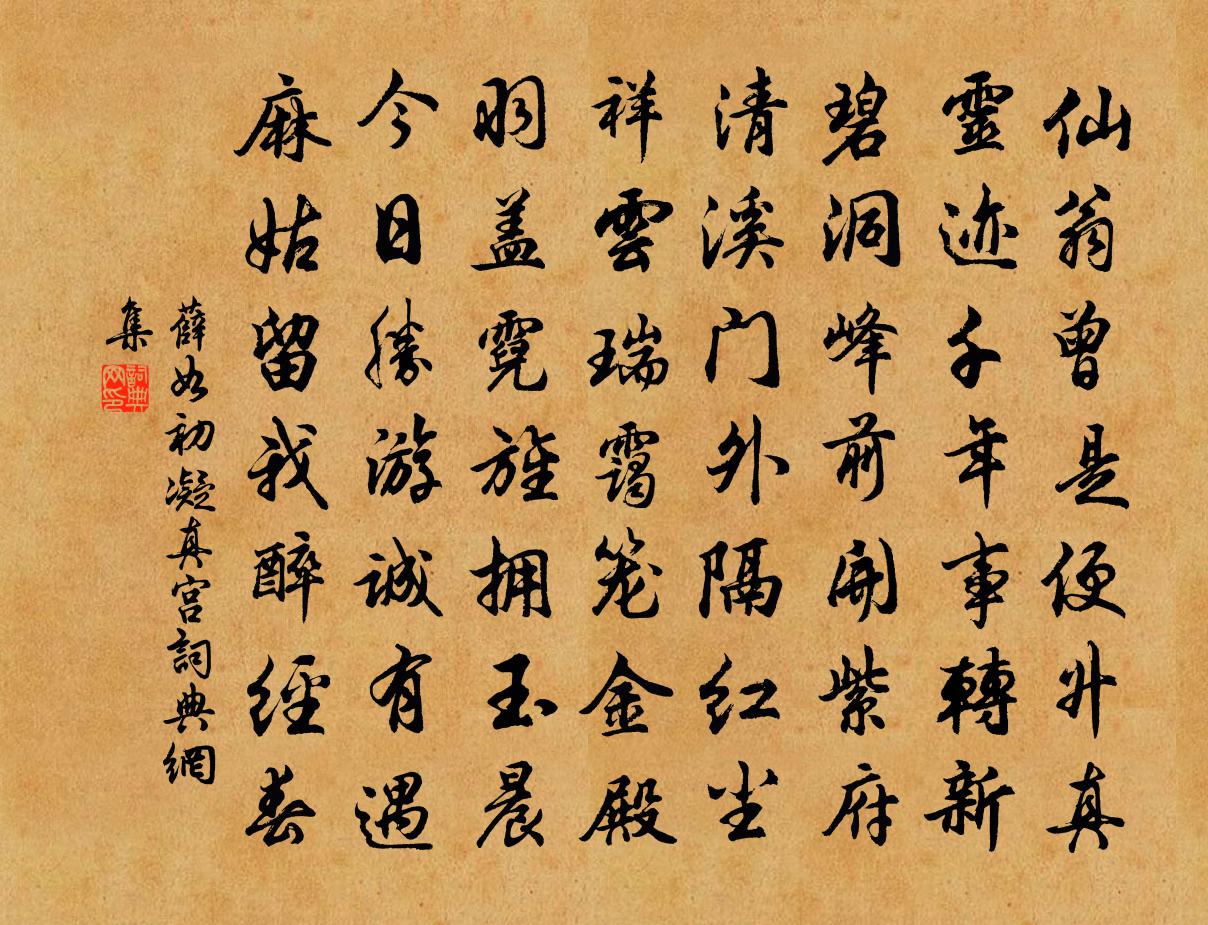 仙翁曾是便升真
靈迹千年事轉新
碧洞峰前開紫府
清溪门外隔红尘
祥雲瑞靄笼金殿
羽盖霓旌拥玉晨
今日勝游诚有遇
麻姑留我醉經春
薛如初凝真宫詞典網
集
詞典网印